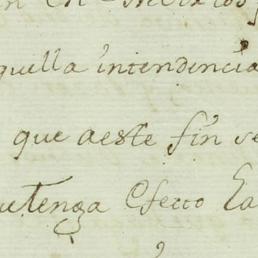 quella intendencia
que aeste fin se
utenga Efecto la